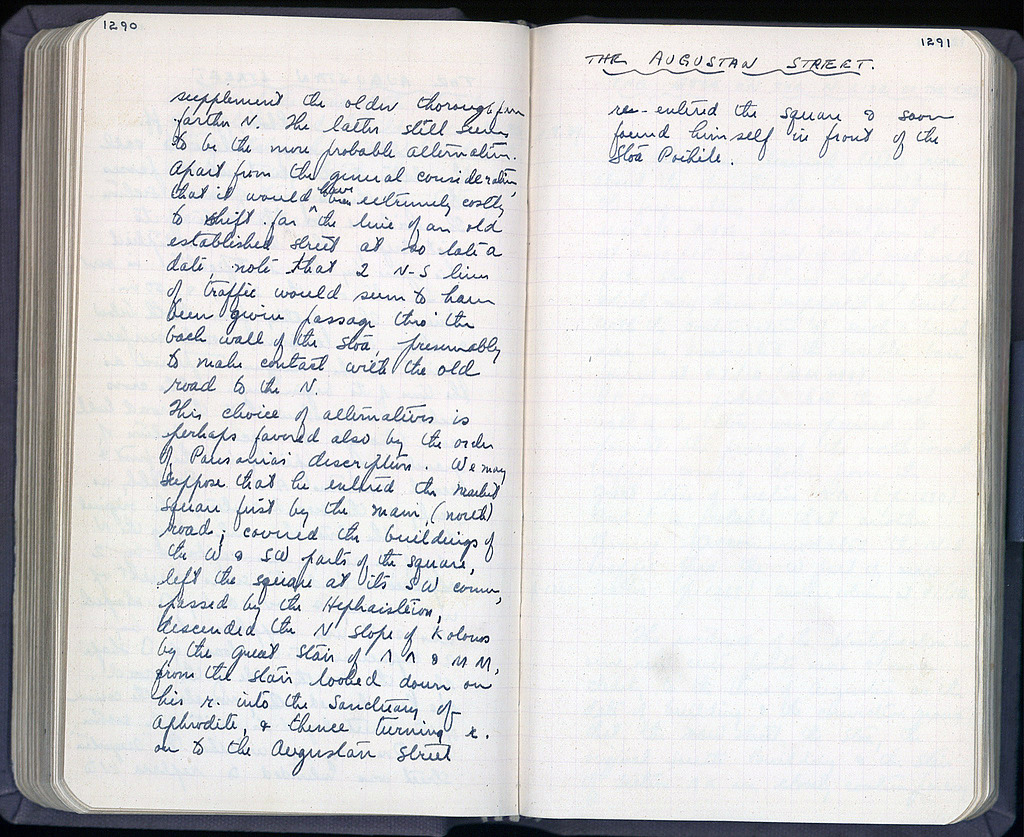 1290
supplement the older thoroughfare
farther N. The latter still seems
to be the more probable alternative.
Apart from the general consideration
that it would have been extremely costly
to shift far the line of an old
established street at so late a
date, note that 2 N-S lines
of traffic would seem to have
been given passage thro' the
back wall of the Stoa, presumably
to make contact with the old
road to the N.
This choice of alternatives is
perhaps favored also by the order
of Pausanias' description. We may
suppose that he entered the market
square first by the main (north)
road; covered the buildings of
the W & SW parts of the square,
left the square at its SW corner,
passed by the Hephaisteion,
descended the N slope of Kolonos
by the great stair of ΛΛ & ΜΜ,
from the stair looked down on
his r. into the Sanctuary of
Aphrodite, & thence turning r.
on to the Augustan Street
1291
THE AUGUSTAN STREET.
re-entered the square & soon
found himself in front of the
Stoa Poikile.